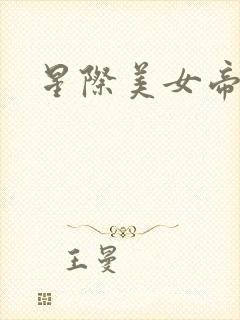 星際美女帝
王曼